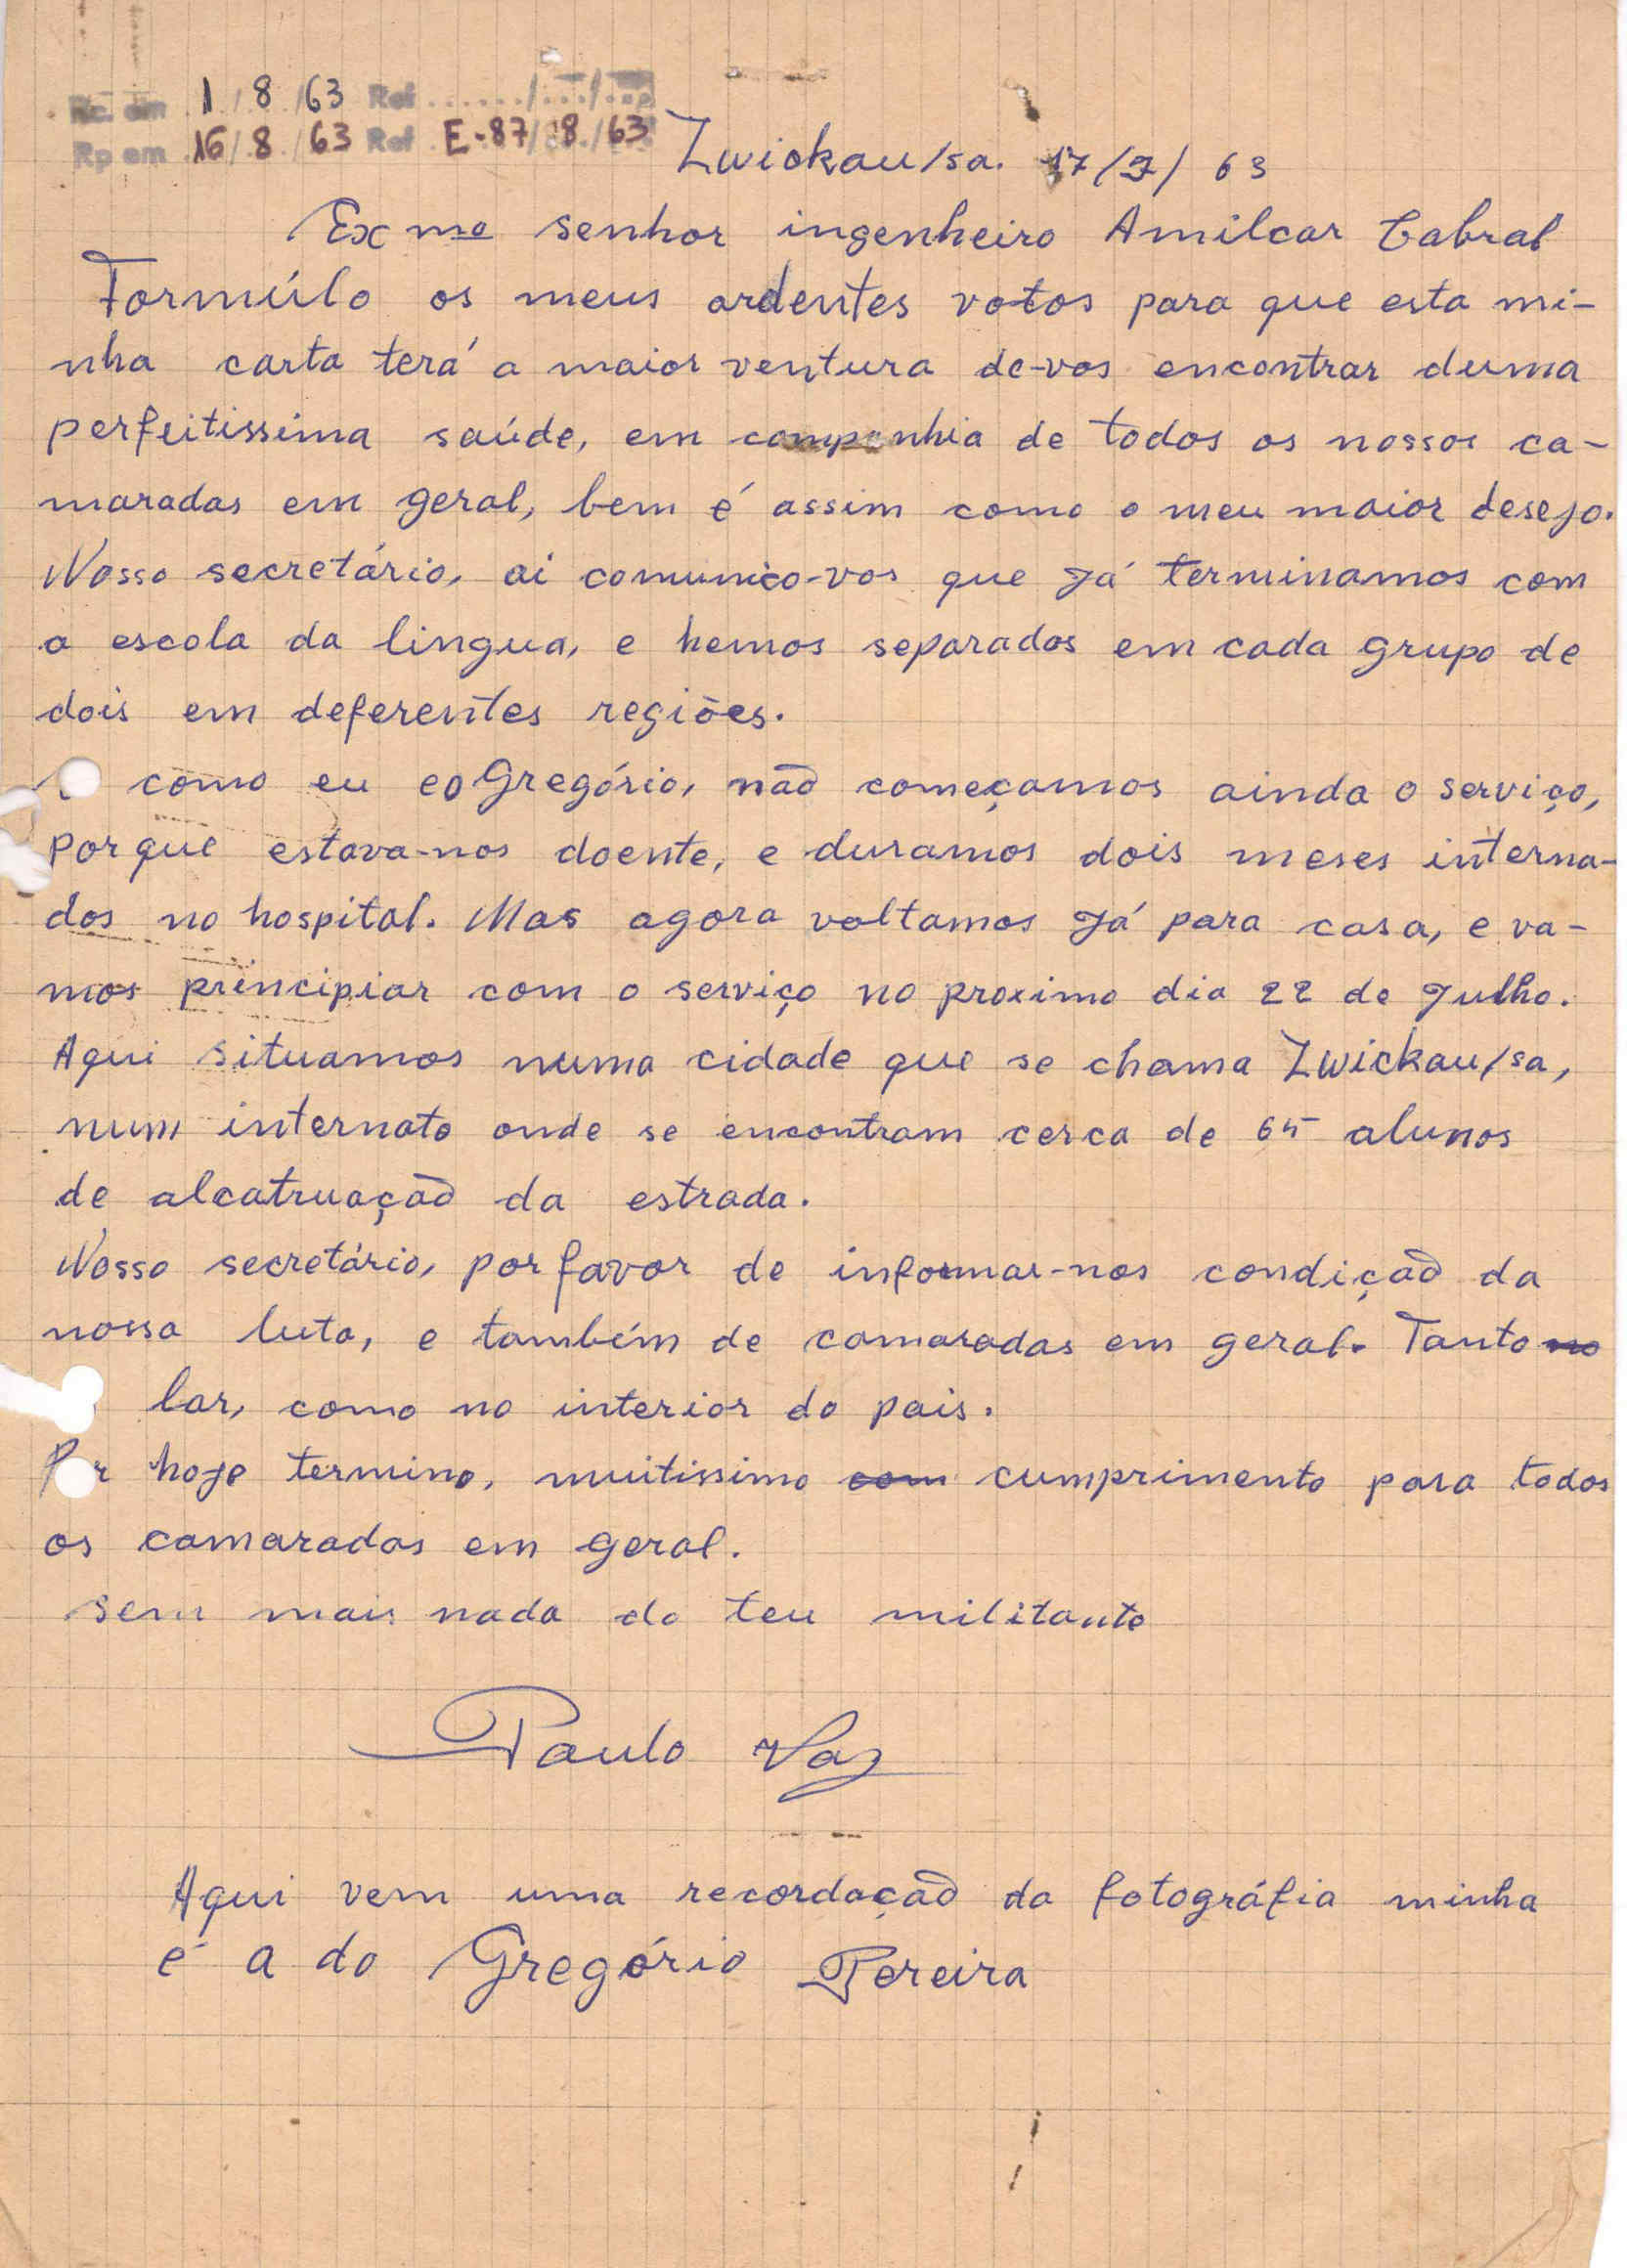 Rc. em 1/8/63 Ref ....../..../...
Rp em 16/8/63 Ref E-87/8/63
Zwickau/sa. 17/7/63
Exmo senhor ingenheiro Amilcar Cabral
Formúlo os meus ardentes votos para que esta mi-
nha carta terá a maior ventura de-vos encontrar duma
perfeitissima saúde, em companhia de todos os nossos ca-
maradas em geral, bem é assim como o meu maior desejo.
Nosso secretário, ai comunico-vos que já terminamos com
a escola da lingua, e hemos separados em cada grupo de
dois em deferentes regiões.
como eu eo Gregório, não começamos ainda o serviço,
porque estava-nos doente, e duramos dois meses interna-
dos no hospital. Mas agora voltamos já para casa, e va-
mos principiar com o serviço no proximo dia 22 de Julho.
Aqui situamos numa cidade que se chama Zwickau/sa,
num internato onde se encontram cerca de 65 alunos
de alcatruação da estrada.
Nosso secretário, por favor de informar-nos condição da
nossa luta, e também de camaradas em geral. Tanto no
lar, como no interior do pais.
Por hoje termino, muitissimo com cumprimento para todos
os camaradas em geral.
sem mais nada do teu militante
Paulo Vaz
Aqui vem uma recordação da fotográfia minha
é a do Gregório Pereira